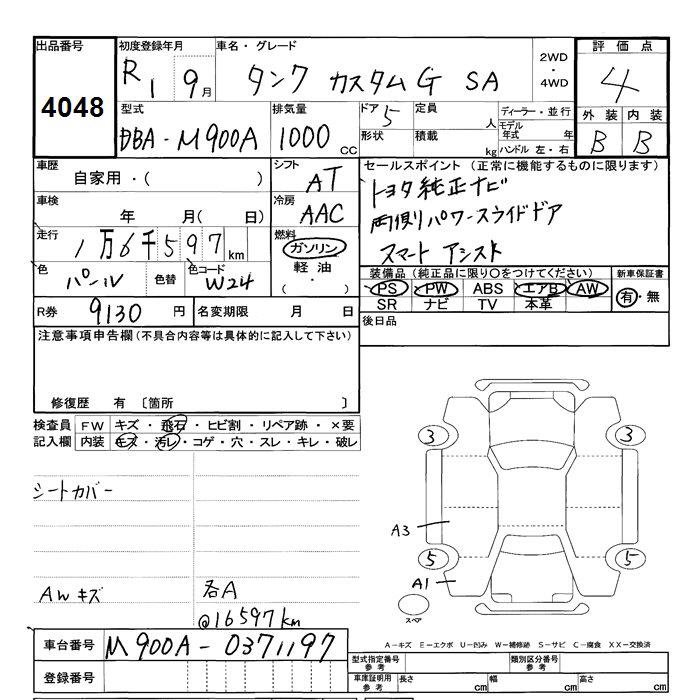 出品番号
4048
初度登録年月
R1 9月
車名・グレード
タンク カスタムG SA
2WD・4WD
評価点
4
外装 内装
B B
型式
DBA-M900A
排気量
1000 CC
ドア 5
形状
定員 人
積載 kg
ディーラー・並行
モデル年式 年
ハンドル 左・右
車歴
自家用・( )
シフト
AT
車検
年 月(日)
冷房
AAC
走行
1万6千597km
燃料
ガソリン
軽油
( ・ )
色
パール
色替
色コード
W24
セールスポイント(正常に機能するものに限ります)
トヨタ純正ナビ
両側パワースライドドア
スマートアシスト
装備品(純正品に限り〇をつけてください)
PS PW ABS エアB AW
SR ナビ TV 本革
新車保証書
有・無
R券 9130 円
名変期限 月 日
後日品
注意事項申告欄(不具合内容等は具体的に記入して下さい)
修復歴 有 〔箇所 〕
検査員記入欄
FW キズ・飛石・ヒビ割・リペア跡・×要
内装 キズ・汚レ・コゲ・穴・スレ・キレ・破レ
シートカバー
AWキズ
各A
@16597km
3 3
A3
5 5
A1
スペア
A-キズ E-エクボ U-凹み W-補修跡 S-サビ C-腐食 XX-交換済
車台番号 M900A-0371197
登録番号
型式指定番号 参考
類別区分番号 参考
車庫証明用 参考
長さ cm 幅 cm 高さ cm